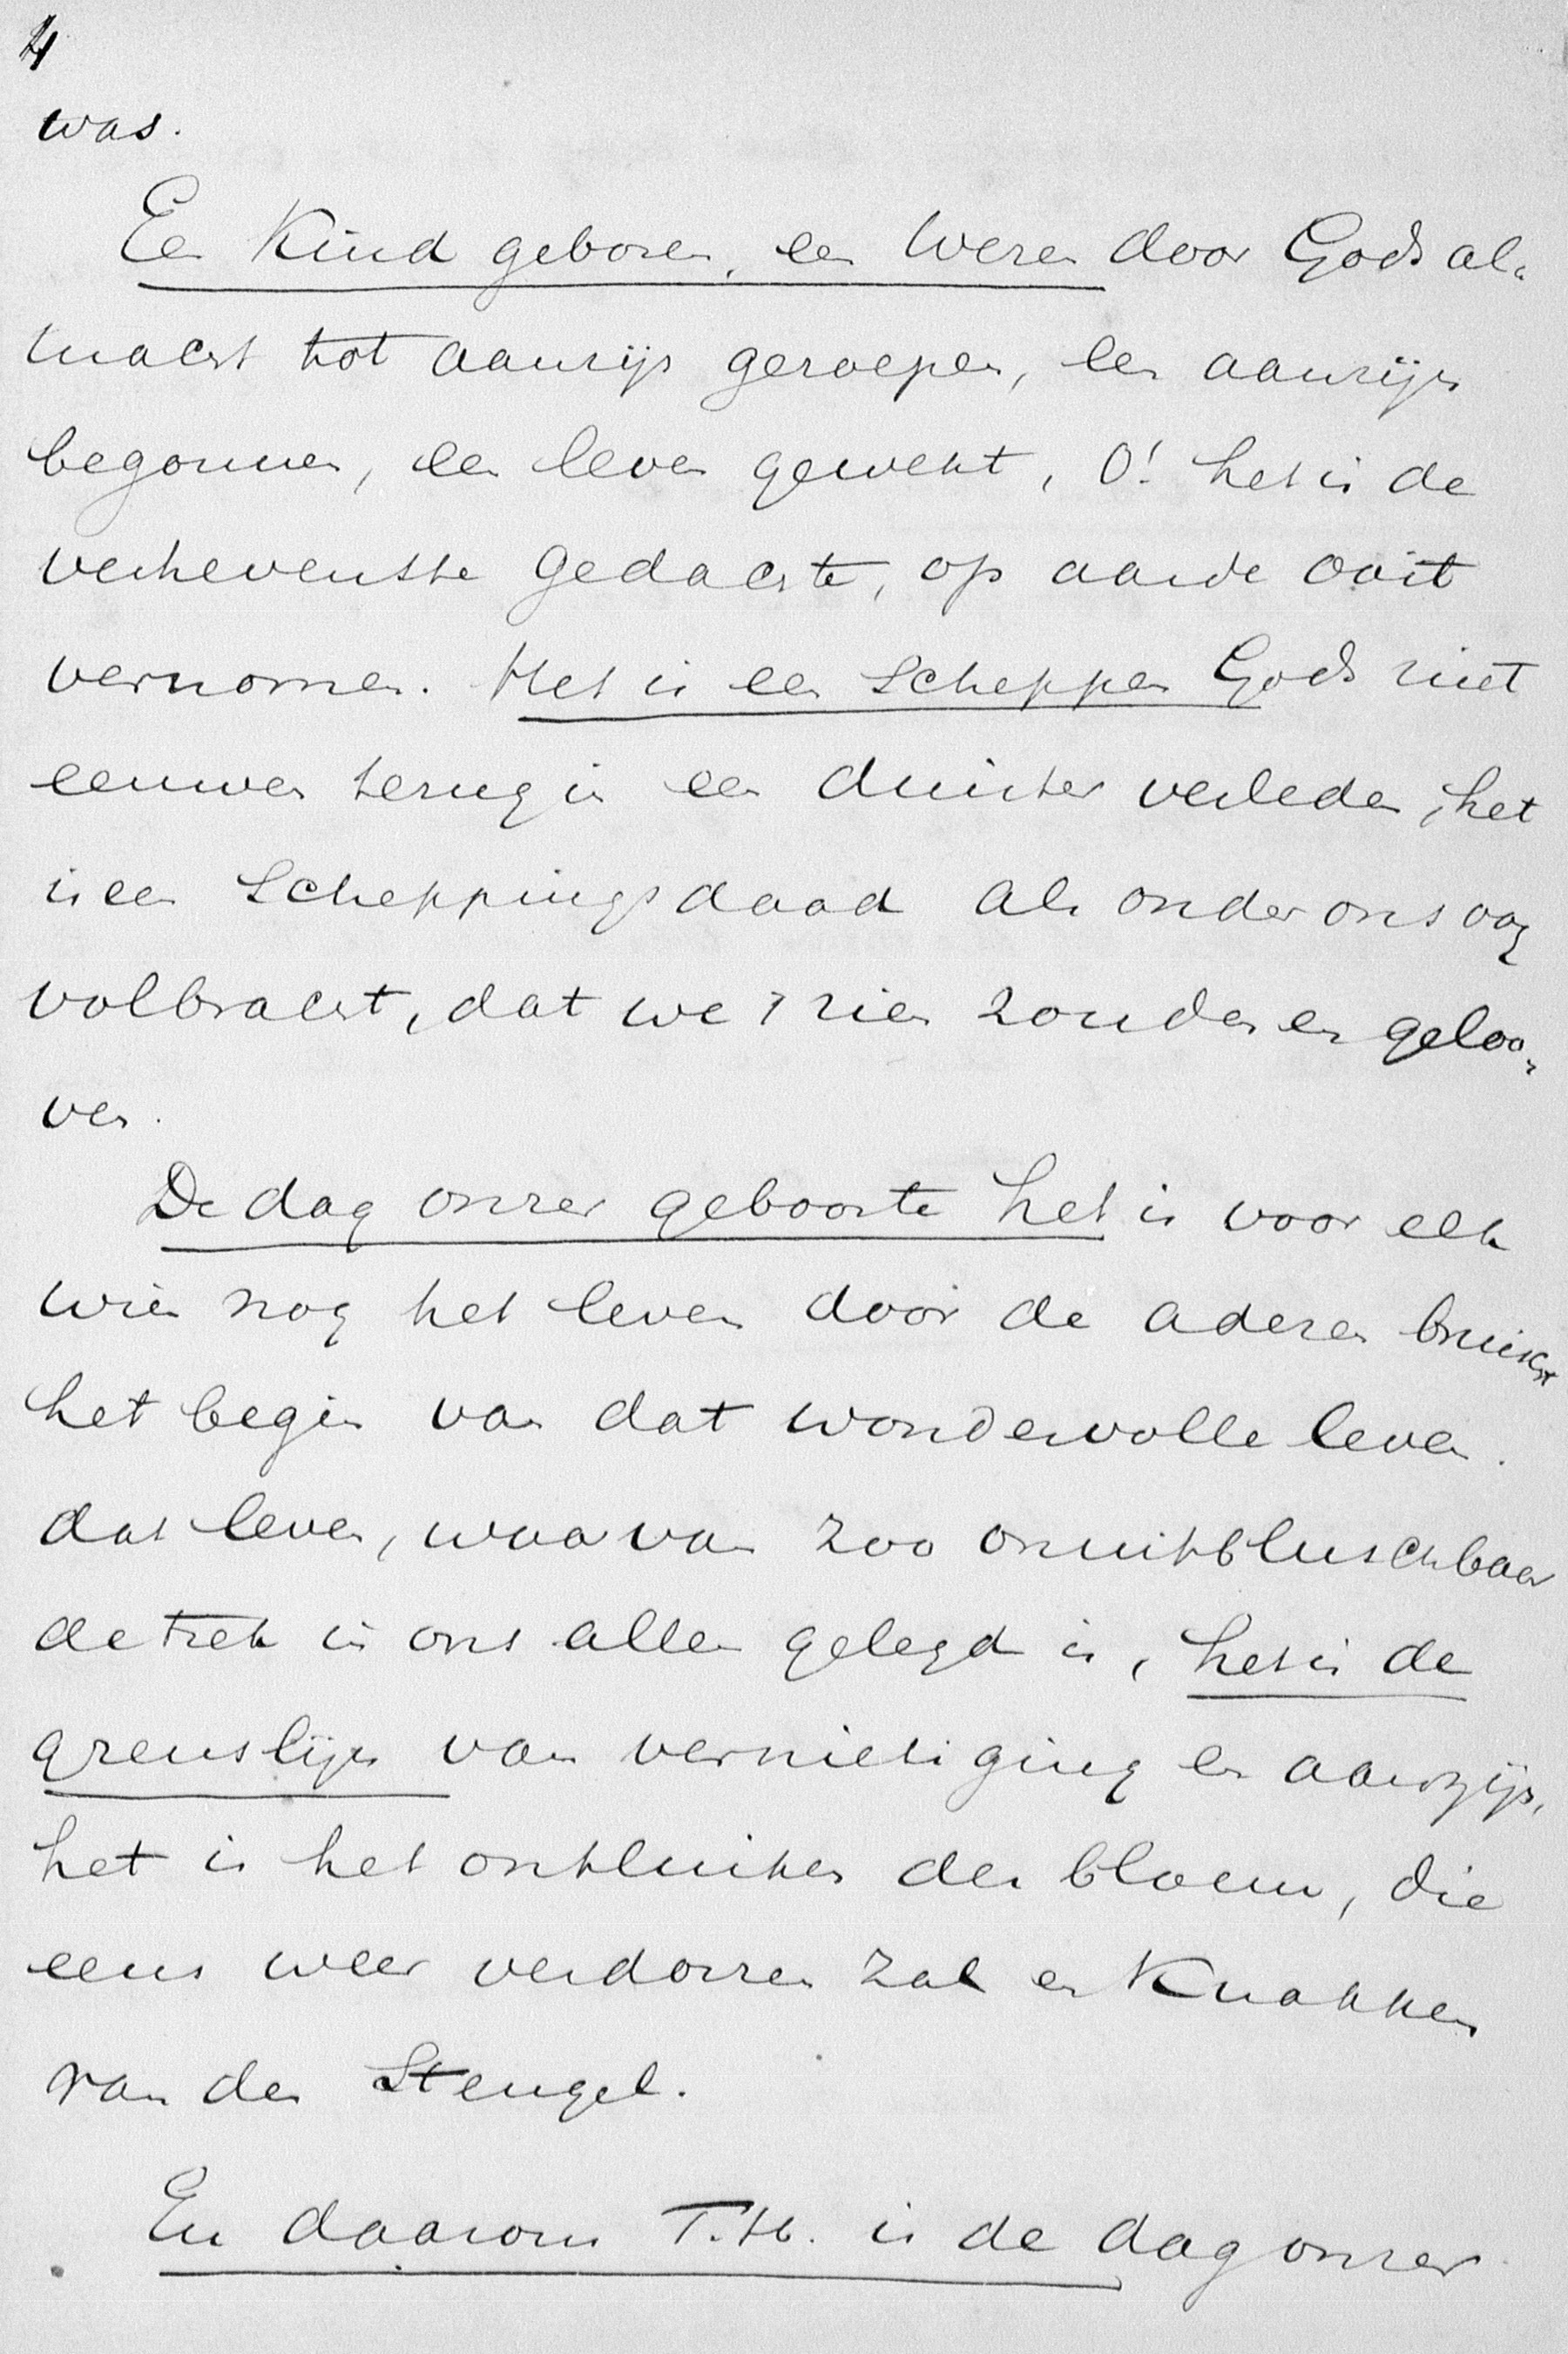 4
was.
Een Kind geboren, een Wezen door Gods al-
macht tot aanzijn geroepen, een aanzijn
begonnen, een leven gewekt, O! het is de
verhevenste gedachte, op aarde ooit
vernomen. Het is een Scheppen Gods niet
eeuwen terug in een duister verleden, het
is een Scheppingsdaad als onder ons oog
volbracht, dat we 't zien zouden en geloo-
ven.
De dag onzer geboorte het is voor elk
wien nog het leven door de aderen bruischt
het begin van dat wondervolle leven.
dat leven, waarvan zoo onuitbluschbaar
de trek in ons allen gelegd is, het is de
grenslijn van vernietiging en aanzijn,
het is het ontluiken der bloem, die
eens weer verdorren zal en Knakken
van den Stengel.
En daarom T.H. is de dag onzer